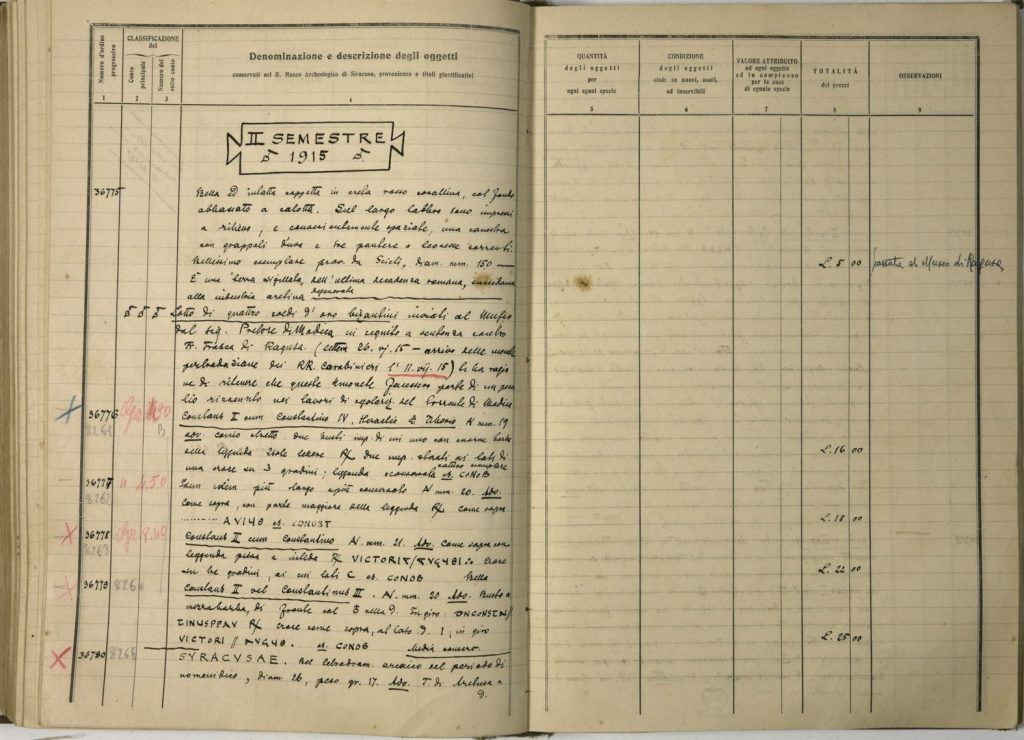 Numero d'ordine progressivo
CLASSIFICAZIONE del
Conto principale
Numero del sotto conto
Denominazione e descrizione degli oggetti
conservati nel R. Museo Archeologico di Siracusa, provenienza e titoli giustificativi
1 2 3 4
QUANTITÀ degli oggetti per ogni egual specie
CONDIZIONE degli oggetti cioè: se nuovi, usati, od inservibili
VALORE ATTRIBUITO ad ogni oggetto ed in complesso per le cose di eguale specie
TOTALITÀ dei prezzi
OSSERVAZIONI
5 6 7 8 9
II SEMESTRE
1915
36775 Bella coppetta in creta rosso corallina, col fondo
abbassato a calotta. Sul largo labbro sono impressi
a rilievo, e convenientemente spaziate, una canestra
con grappoli d'uva e tre pantere o leonesse correnti.
Bellissimo esemplare prov. da Scicli, diam. mm. 150 —
L. 5 00 passata al Museo di Ragusa
È una terra sigillata, dell'ultima decadenza romana, succedanea
alla industria aretina degenerata
Lotto di quattro soldi d'oro bizantini inviati al Museo
dal sig. Pretore di Modica in seguito a sentenza contro
Frasca di Ragusa. (lettera 26. vj. 15 — arrivo delle monete
per tradazione dei RR. Carabinieri l' 11. vij. 15) Si ha ragio
ne di ritenere che queste 4 monete facessero parte di un
rinvenuto nei lavori di del torrente di Modica
36776 Constans II cum Constantino IV. Heraclio et Tiberio N mm. 19
8261
adv. conio stretto due busti imp. di cui uno con enorme barba
della leggenda sole lettere R/ due imp. stanti ai lati di
L. 16 00
una croce su 3 gradini; leggenda cattivo esemplare es. CONOB
36777 4,50 Idem idem più largo e più conservato N mm. 20. Adv.
8262
Come sopra, con parte maggiore della leggenda R/ come sopra
L. 18 00
........ AVIYΘ es. CONOBT
36778 Constans II cum Constantino N. mm. 21. Adv. Come sopra con
8263
leggenda piena e nitida R/ VICTORI croce
su tre gradini, ai cui lati C es. CONOB Bella
L. 22 00
36779 8264 Constans II vel Constantinus III. N. mm. 20 Adv. Busto a
mezza barba, di fronte col nella D. In giro:
TINUSPPAV R/ croce come sopra, al lato D. 1; in giro
VICTORI // es. CONOB Media conserv.
L. 25 00
36780 8265 SYRACVSAE. Bel tetradram. arcaico del periodo di
diam 26, peso gr. 17. Adv. T. di Aretusa a
D.